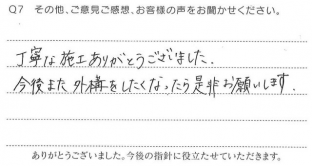 Q7 その他、ご意見ご感想、お客様の声をお聞かせください。
丁寧な施工ありがとうございました.
今後また外構をしたくなったら是非お願いします.
ありがとうございました。今後の指針に役立たせていただきます。